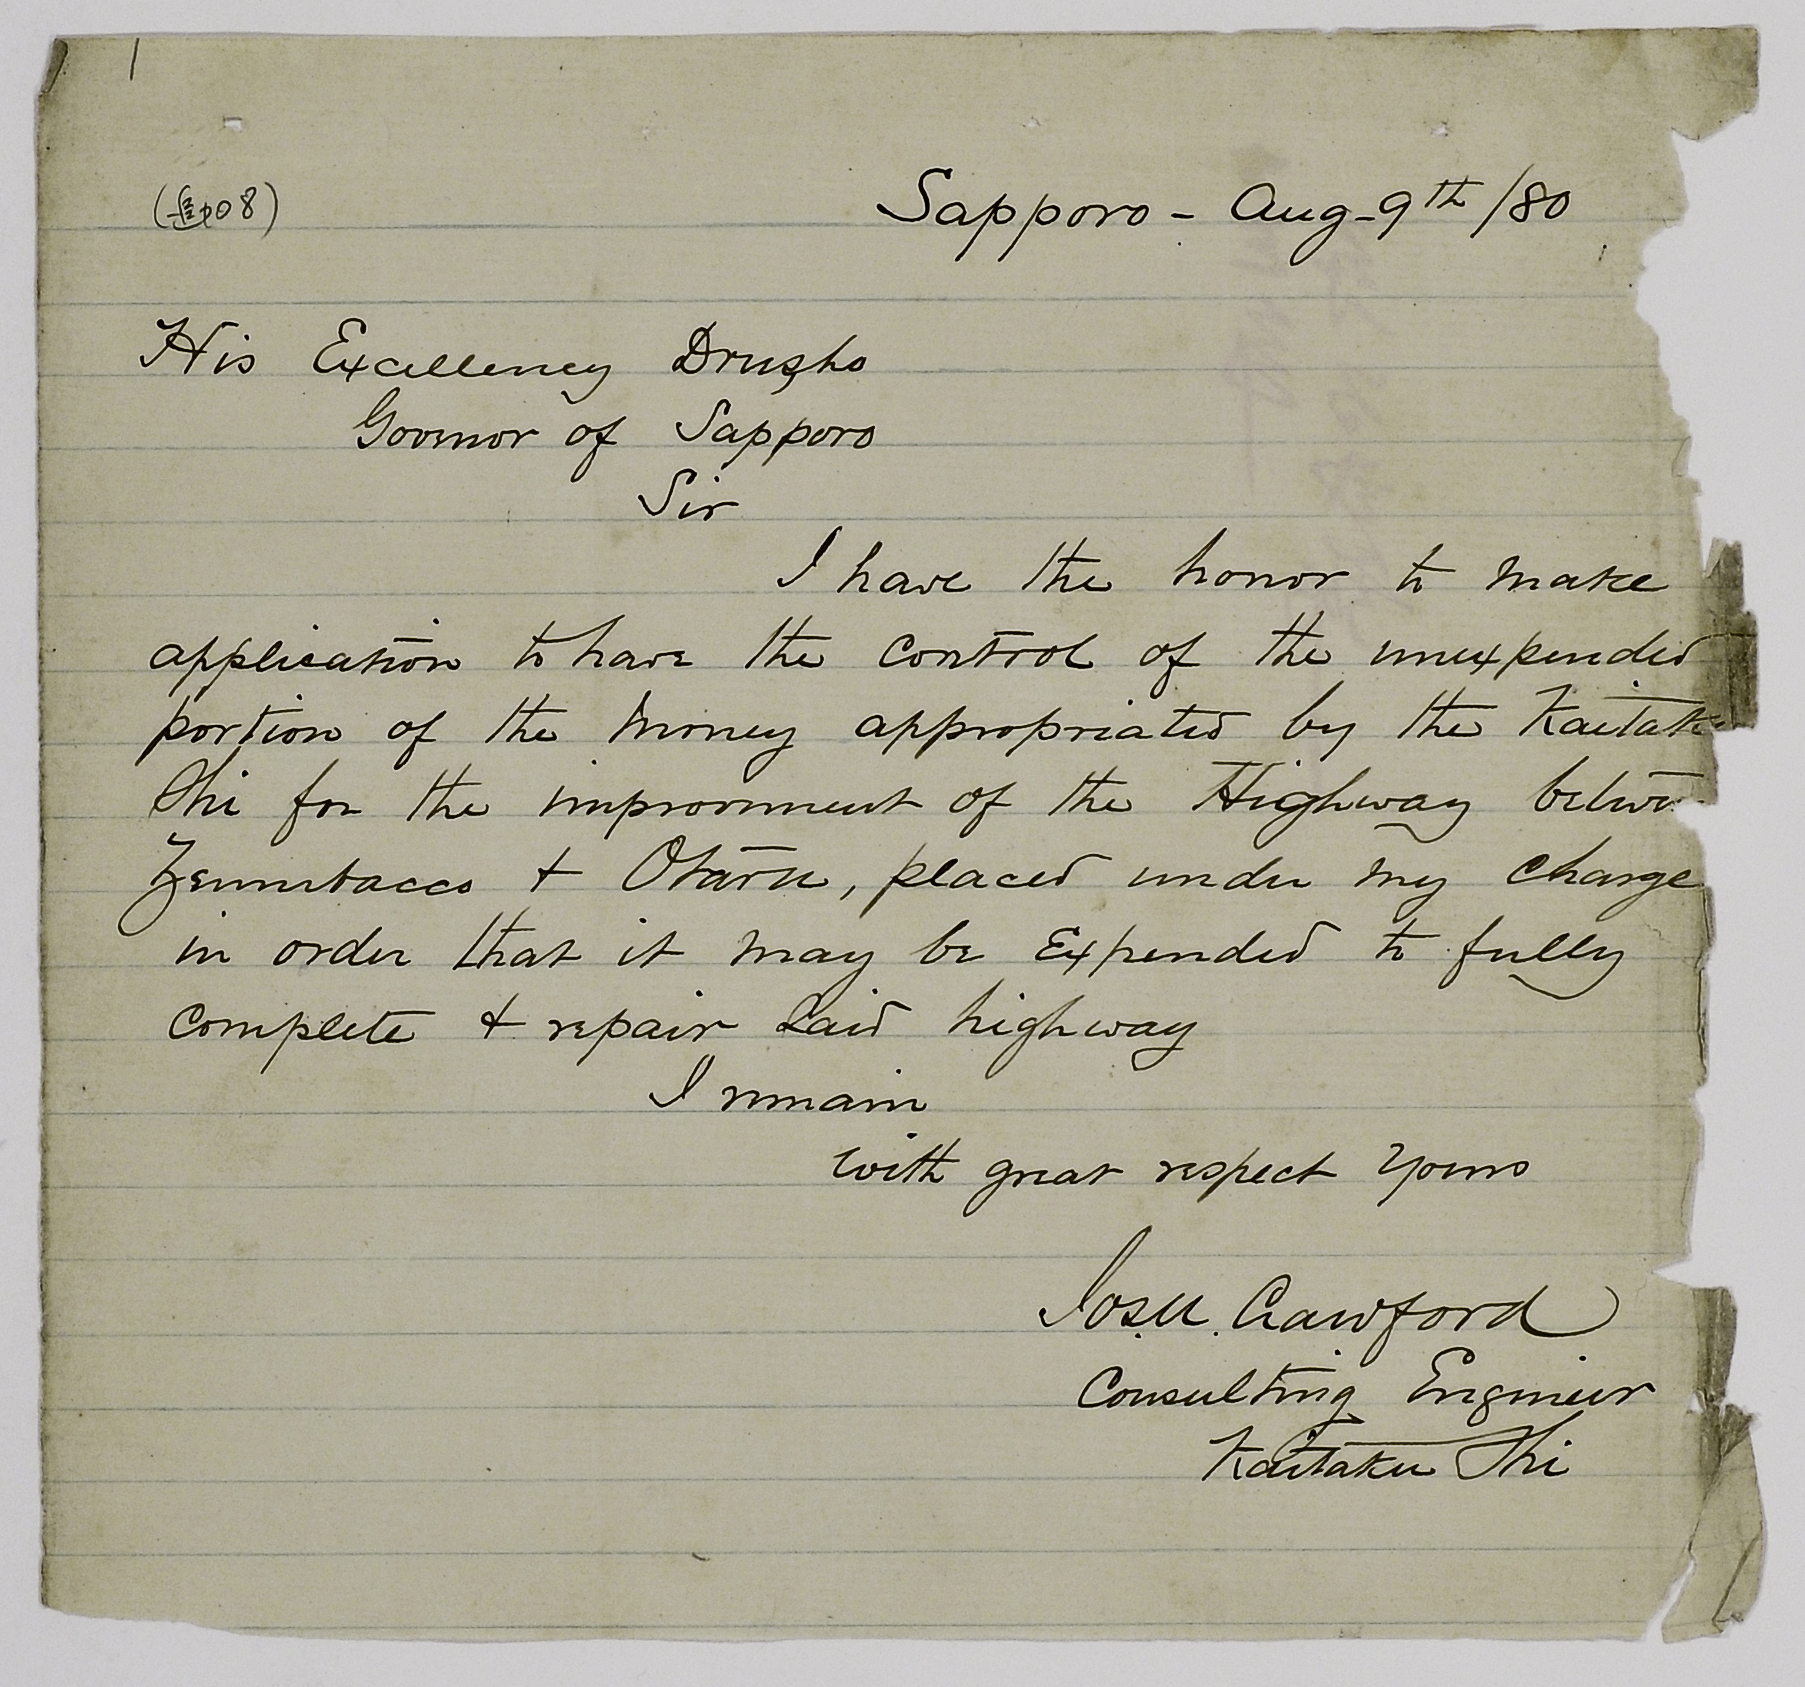 1
08)
Sapporo - Aug - 9th /80
His Excellency Drusho
Govenor of Sapporo
Sir
I have the honor to make
application to have the control of the unexpended
portion of the money appropriated by the Kaitak
Shi for the improvement of the Highway betwe
Zennibacco & Otaru, placed under my charge
in order that it may be expended to fully
complete & repair said highway
I remain
with great respect yours
Jos. U. Crawford
Consulting Engineer
Kaitaku Shi